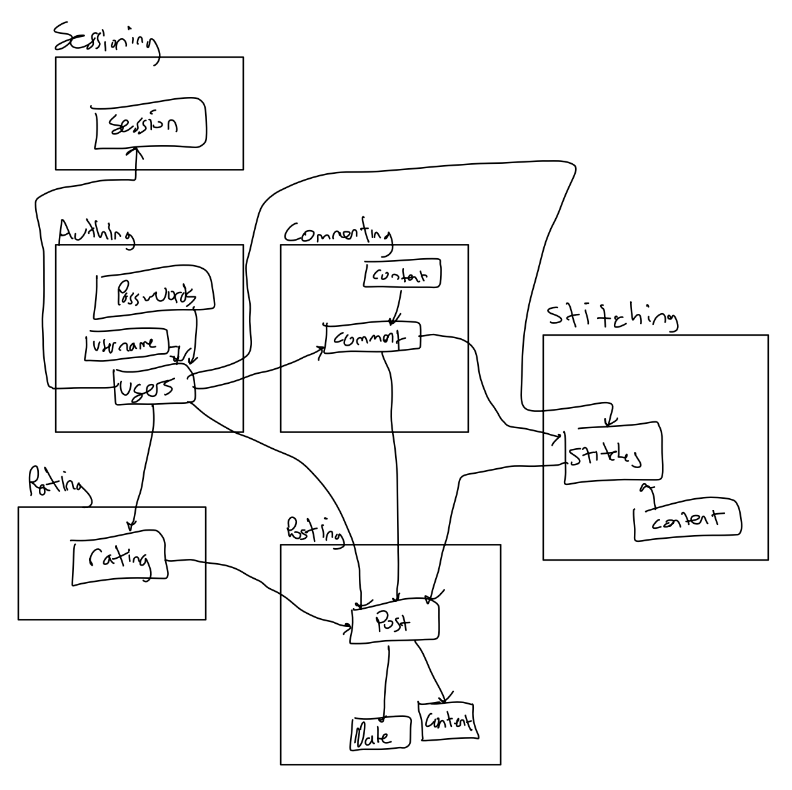 Sessioning
Session
Authing
Passwords
username
users
Commenting
content
comment
Stitching
Stitches
content
Rating
rating
Posting
Post
Date
Content